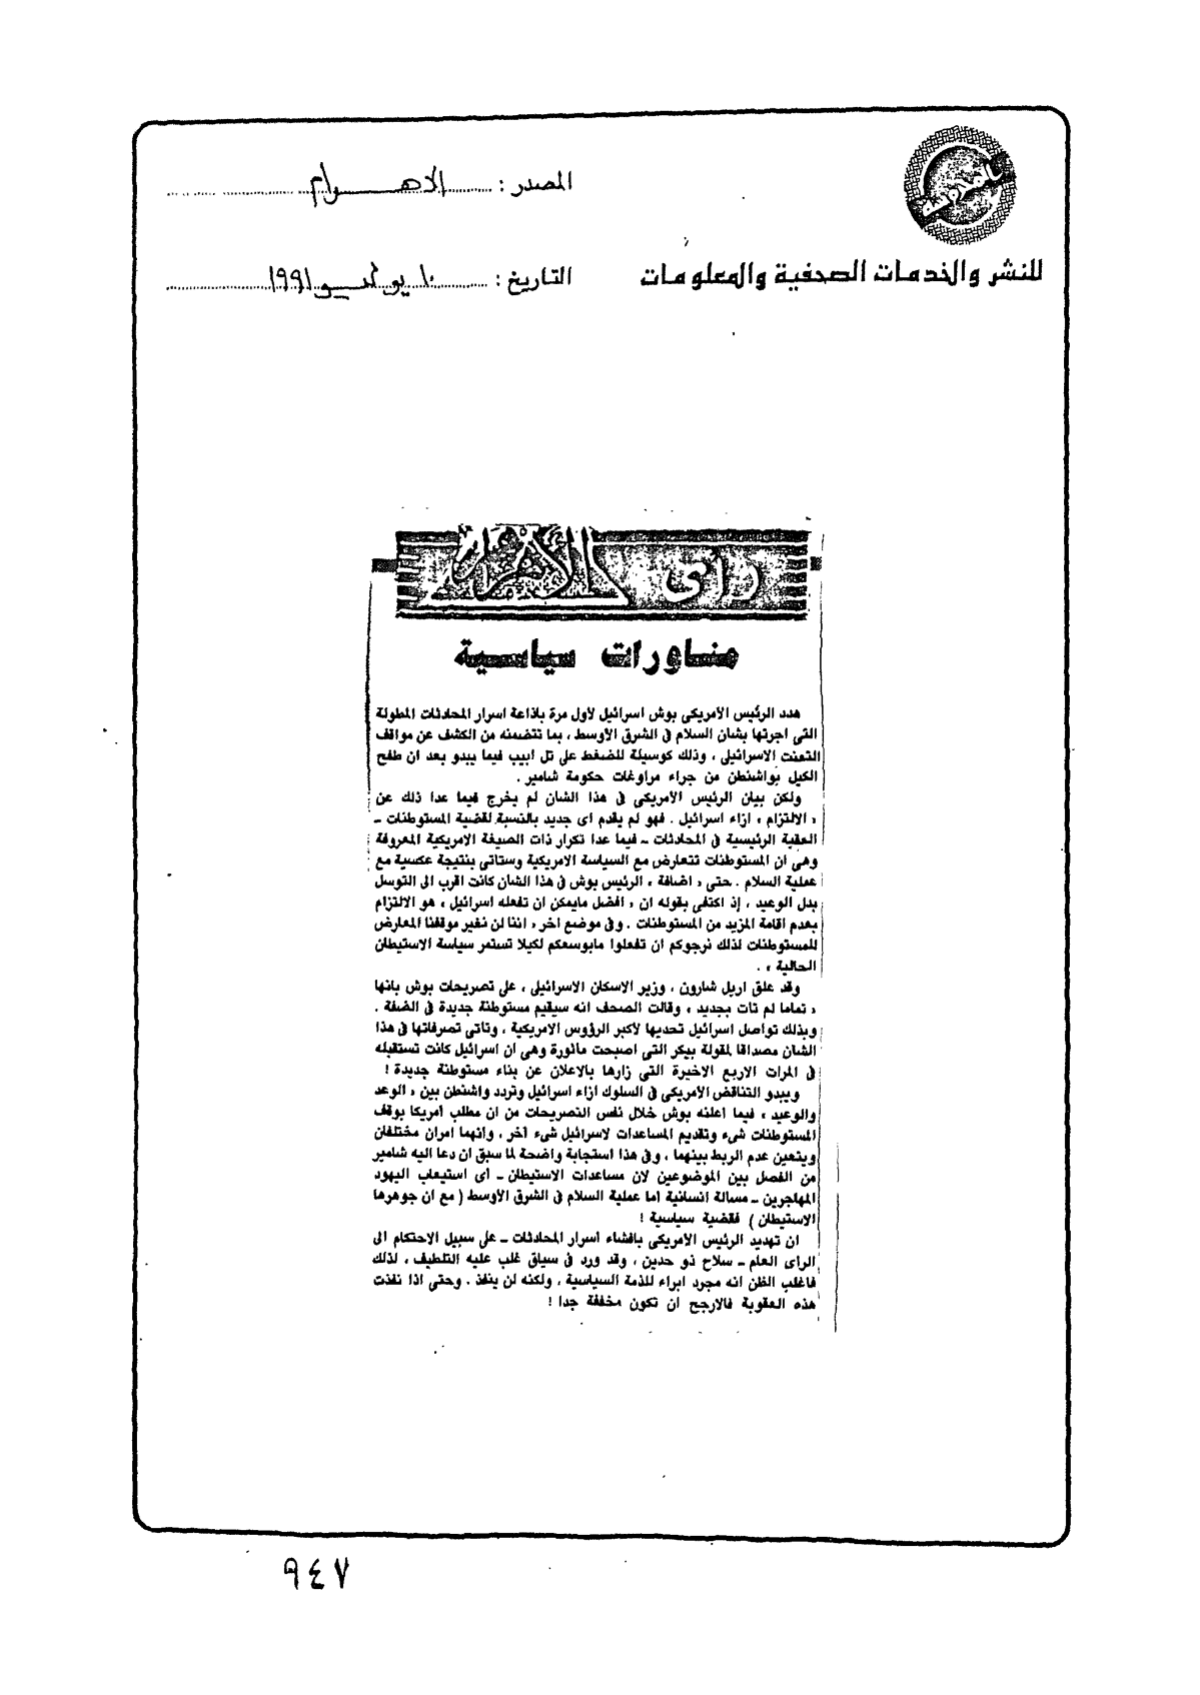 المصدر : الاهـــرام
للنشر والخدمات الصحفية والمعلومات
التاريخ : ١٠ يوليو ١٩٩١
رأى الأهرام
مناورات سياسية
هدد الرئيس الأمريكى بوش اسرائيل لأول مرة باذاعة اسرار المحادثات المطولة
التى اجرتها بشان السلام فى الشرق الأوسط ، بما تتضمنه من الكشف عن مواقف
التعنت الاسرائيلى ، وذلك كوسيلة للضغط على تل ابيب فيما يبدو بعد ان طفح
الكيل بواشنطن من جراء مراوغات حكومة شامير .
ولكن بيان الرئيس الأمريكى فى هذا الشان لم يخرج فيما عدا ذلك عن
« الالتزام » ازاء اسرائيل . فهو لم يقدم اى جديد بالنسبة لقضية المستوطنات -
العقبة الرئيسية فى المحادثات - فيما عدا تكرار ذات الصيغة الامريكية المعروفة
وهى ان المستوطنات تتعارض مع السياسة الامريكية وستاتى بنتيجة عكسية مع
عملية السلام . حتى « اضافة » الرئيس بوش فى هذا الشان كانت اقرب الى التوسل
بدل الوعيد ، إذ اكتفى بقوله ان « افضل مايمكن ان تفعله اسرائيل ، هو الالتزام
بعدم اقامة المزيد من المستوطنات . وفى موضع اخر « اننا لن نغير موقفنا المعارض
للمستوطنات لذلك نرجوكم ان تفعلوا مابوسعكم لكيلا تستمر سياسة الاستيطان
الحالية » .
وقد علق اريل شارون ، وزير الاسكان الاسرائيلى ، على تصريحات بوش بانها
« تماما لم تات بجديد » وقالت الصحف انه سيقيم مستوطنة جديدة فى الضفة .
وبذلك تواصل اسرائيل تحديها لأكبر الرؤوس الامريكية ، وتاتى تصرفاتها فى هذا
الشان مصداقا لمقولة بيكر التى اصبحت ماثورة وهى ان اسرائيل كانت تستقبله
فى المرات الاربع الاخيرة التى زارها بالاعلان عن بناء مستوطنة جديدة !
ويبدو التناقض الأمريكى فى السلوك ازاء اسرائيل وتردد واشنطن بين « الوعد
والوعيد » فيما اعلنه بوش خلال نفس التصريحات من ان مطلب أمريكا بوقف
المستوطنات شىء وتقديم المساعدات لاسرائيل شىء آخر ، وانهما امران مختلفان
ويتعين عدم الربط بينهما ، وفى هذا استجابة واضحة لما سبق ان دعا اليه شامير
من الفصل بين الموضوعين لان مساعدات الاستيطان - أى استيعاب اليهود
المهاجرين - مسالة انسانية اما عملية السلام فى الشرق الأوسط ( مع ان جوهرها
الاستيطان ) فقضية سياسية !
ان تهديد الرئيس الأمريكى بافشاء اسرار المحادثات - على سبيل الاحتكام الى
الراى العام - سلاح ذو حدين ، وقد ورد فى سياق غلب عليه التلطيف ، لذلك
فاغلب الظن انه مجرد ابراء للذمة السياسية ، ولكنه لن ينفذ . وحتى اذا نفذت
هذه العقوبة فالارجح ان تكون مخففة جدا !
٩٤٧